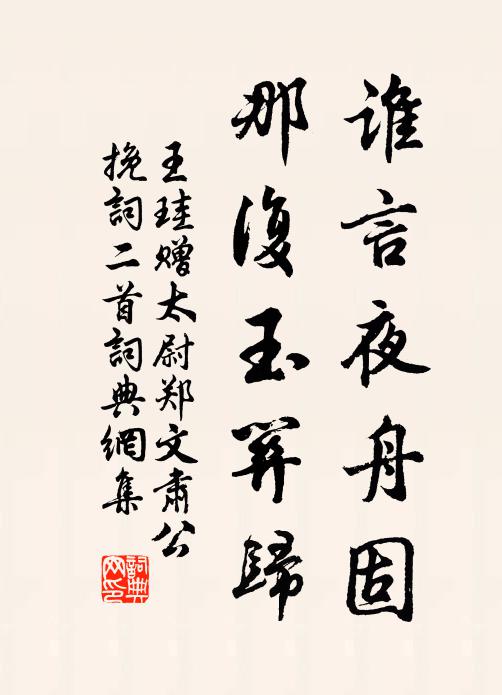 谁言夜舟固
那復玉關歸
王珪赠太尉郑文肃公
挽詞二首詞典網集
詞典
网印